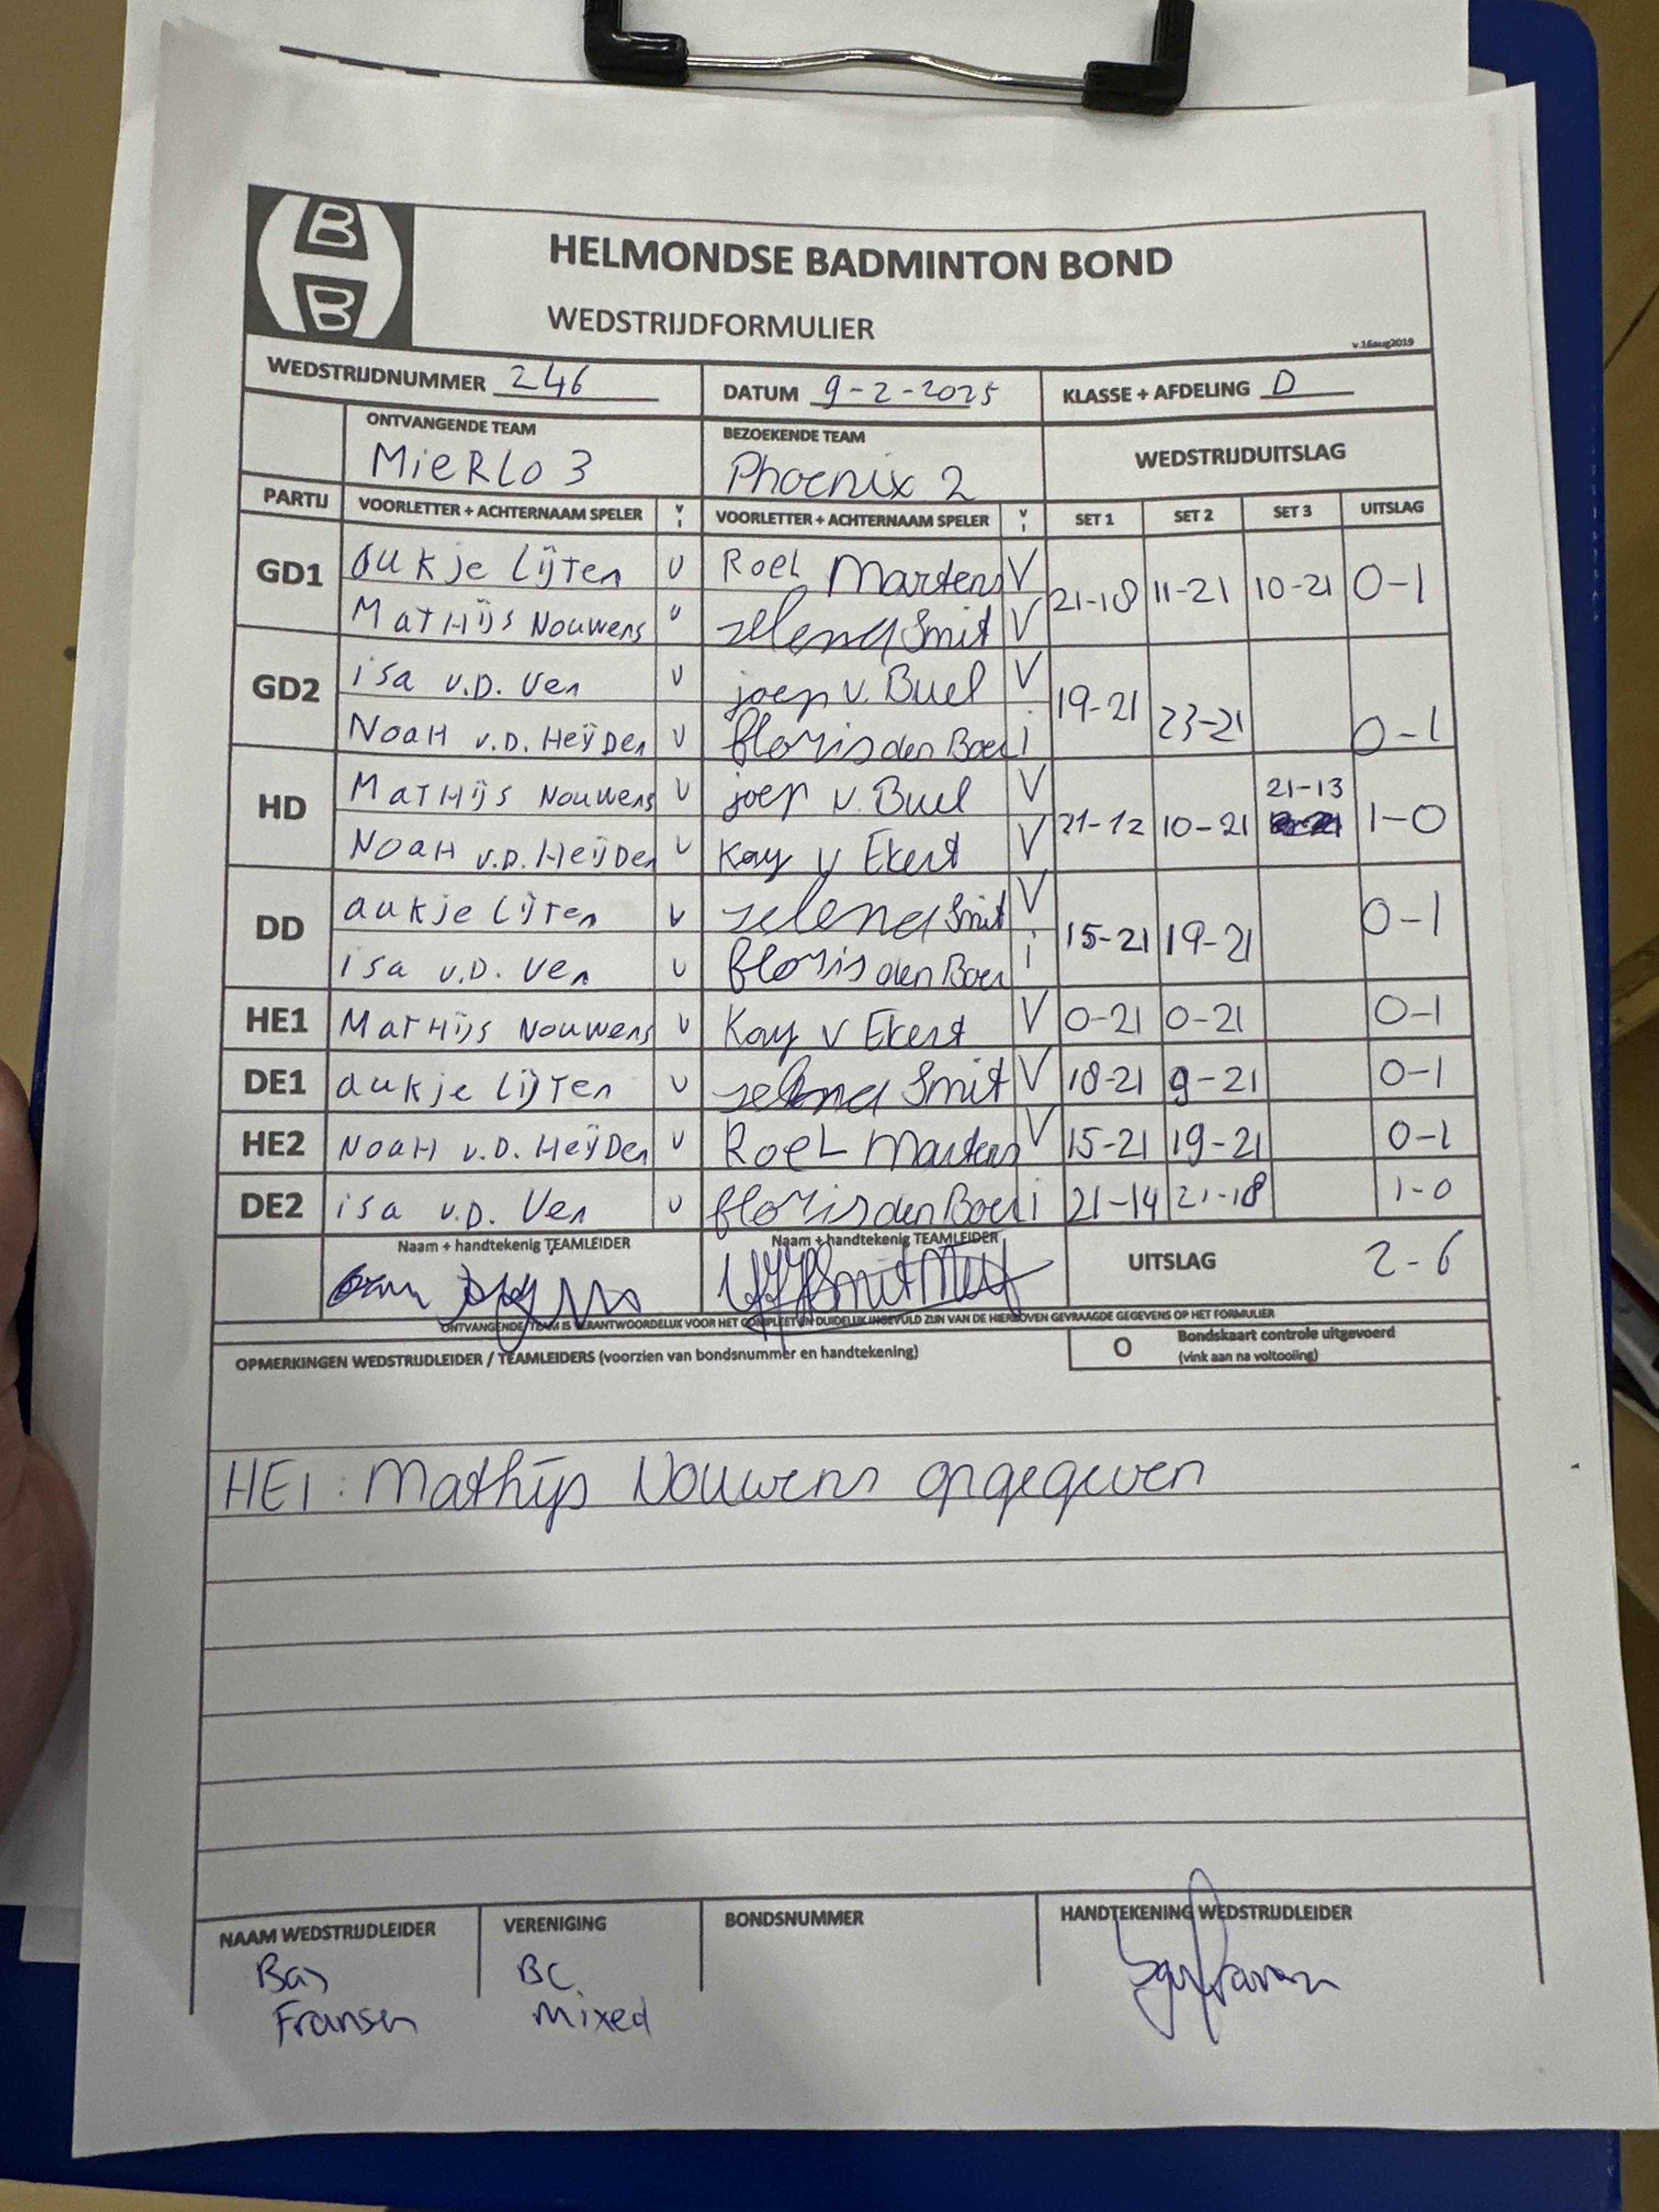 B
B
HELMONDSE BADMINTON BOND
WEDSTRIJDFORMULIER
v.16aug2019
WEDSTRIJDNUMMER 246 DATUM 9-2-2025 KLASSE + AFDELING D
ONTVANGENDE TEAM BEZOEKENDE TEAM WEDSTRIJDUITSLAG
MieRlo 3 Phoenix 2
PARTIJ VOORLETTER + ACHTERNAAM SPELER V I VOORLETTER + ACHTERNAAM SPELER V I SET 1 SET 2 SET 3 UITSLAG
GD1 aukje Lijten v Roel Martens V 21-18 11-21 10-21 0-1
Mathijs Nouwens v selena Smit V
GD2 isa v.D. Ven v joep v. Buel V 19-21 23-21 0-1
Noah v.D. Heijden v floris den Boer i
HD Mathijs Nouwens v joep v. Buel V 21-12 10-21 21-13 1-0
Noah v.D. Heijden v Kay v Ekert V
DD aukje Lijten v selena Smit V 15-21 19-21 0-1
isa v.D. Ven v floris den Boer i
HE1 Mathijs Nouwens v Kay v Ekert V 0-21 0-21 0-1
DE1 aukje Lijten v selena Smit V 18-21 9-21 0-1
HE2 Noah v.D. Heijden v Roel Martens V 15-21 19-21 0-1
DE2 isa v.D. Ven v floris den Boer i 21-14 21-18 1-0
Naam + handtekenig TEAMLEIDER Naam + handtekenig TEAMLEIDER UITSLAG 2-6
ONTVANGENDE TEAM IS VERANTWOORDELIJK VOOR HET COMPLEET EN DUIDELIJK INGEVULD ZIJN VAN DE HIERBOVEN GEVRAAGDE GEGEVENS OP HET FORMULIER
OPMERKINGEN WEDSTRIJDLEIDER / TEAMLEIDERS (voorzien van bondsnummer en handtekening) O Bondskaart controle uitgevoerd
(vink aan na voltooiing)
HE1: Mathijs Nouwens opgegeven
NAAM WEDSTRIJDLEIDER VERENIGING BONDSNUMMER HANDTEKENING WEDSTRIJDLEIDER
Bas BC
Fransen Mixed